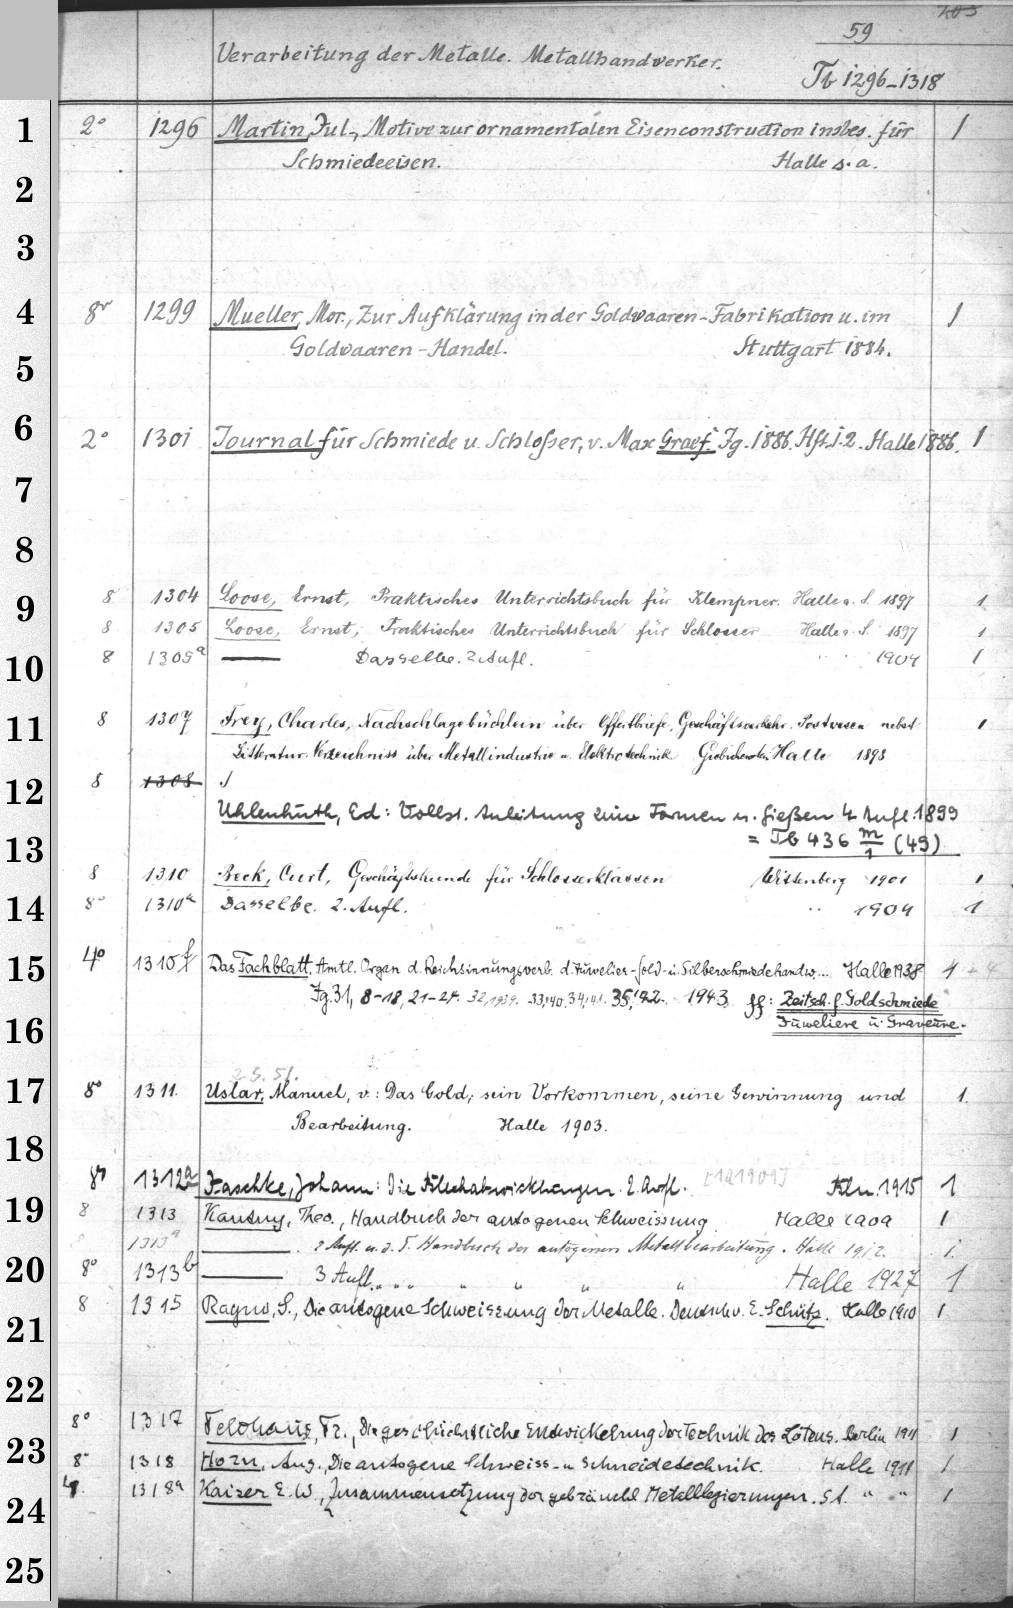 59
Verarbeitung der Metalle. Metallhandwerker.
Tb 1296-1318
1 2° 1296 Martin, Jul., Motive zur ornamentalen Eisenconstruction insbes. für 1
Schmiedeeisen. Halle s. a.
2
3
4 8° 1299 Mueller, Mor., Zur Aufklärung in der Goldwaaren-Fabrikation u. im 1
Goldwaaren-Handel. Stuttgart 1884.
5
6 2° 1301 Journal für Schmiede u. Schlosser, v. Max Graef. Jg. 1886. Hft. 1.2. Halle 1886. 1
7
8
9 8 1304 Loose, Ernst, Praktisches Unterrichtsbuch für Klempner. Halle a. S. 1897 1
8 1305 Loose, Ernst, Praktisches Unterrichtsbuch für Schlosser Halle a. S. 1897 1
10 8 1305a — Dasselbe. 2. Aufl. " " 1904 1
11 8 1307 Frey, Charles, Nachschlagebüchlein über Offertbriefe, Geschäftsverkehr, Postwesen nebst 1
Litteratur-Verzeichniss über Metallindustrie u. Elektrotechnik Giebichenstein Halle 1898
12 8 1308
Uhlenhuth, Ed: Vollst. Anleitung zum Formen u. Gießen 4 Aufl. 1899
13 = Tb 436 m/1 (49)
8 1310 Beck, Curt, Geschäftskunde für Schlosserklassen Wittenberg 1901 1
14 8° 1310a Dasselbe. 2. Aufl. " 1904 1
15 4° 1310f Das Fachblatt. Amtl. Organ d. Reichsinnungsverb. d. Juwelier-Gold- u. Silberschmiedehandw... Halle 1938 4
Jg. 31, 8-18, 21-24. 32,1939. 33,40. 34,41. 35,'42. 1943 ff: Zeitsch. f. Goldschmiede
16 Juweliere u. Graveure.
17 8° 1311. Uslar, Manuel, v.: Das Gold, sein Vorkommen, seine Gewinnung und 1.
Bearbeitung. Halle 1903.
18
8° 1312a Jaschke, Johann: Die Blechabwicklungen. 2. Aufl. Bln. 1915 1
19 8 1313 Kautny, Theo., Handbuch der autogenen Schweissung Halle 1909 1
8 1313a — . 2 Aufl. u. d. T. Handbuch der autogenen Metallbearbeitung. Halle 1912. 1.
20 8° 1313b — 3 Aufl. " " " " " " " Halle 1927 1
8 1315 Ragno, S., Die autogene Schweissung der Metalle. Deutsch v. E. Schütz. Halle 1910 1
21
22
8° 1317 Feldhaus, Fr., Die geschichtliche Entwickelung der Technik des Lötens. Berlin 1911 1
23 8° 1318 Horn, Aug., Die autogene Schweiss- u. Schneidetechnik. Halle 1911 1
4 1318a Kaiser E. W., Zusammensetzung der gebräuchl Metalllegierungen. " " 1
24
25